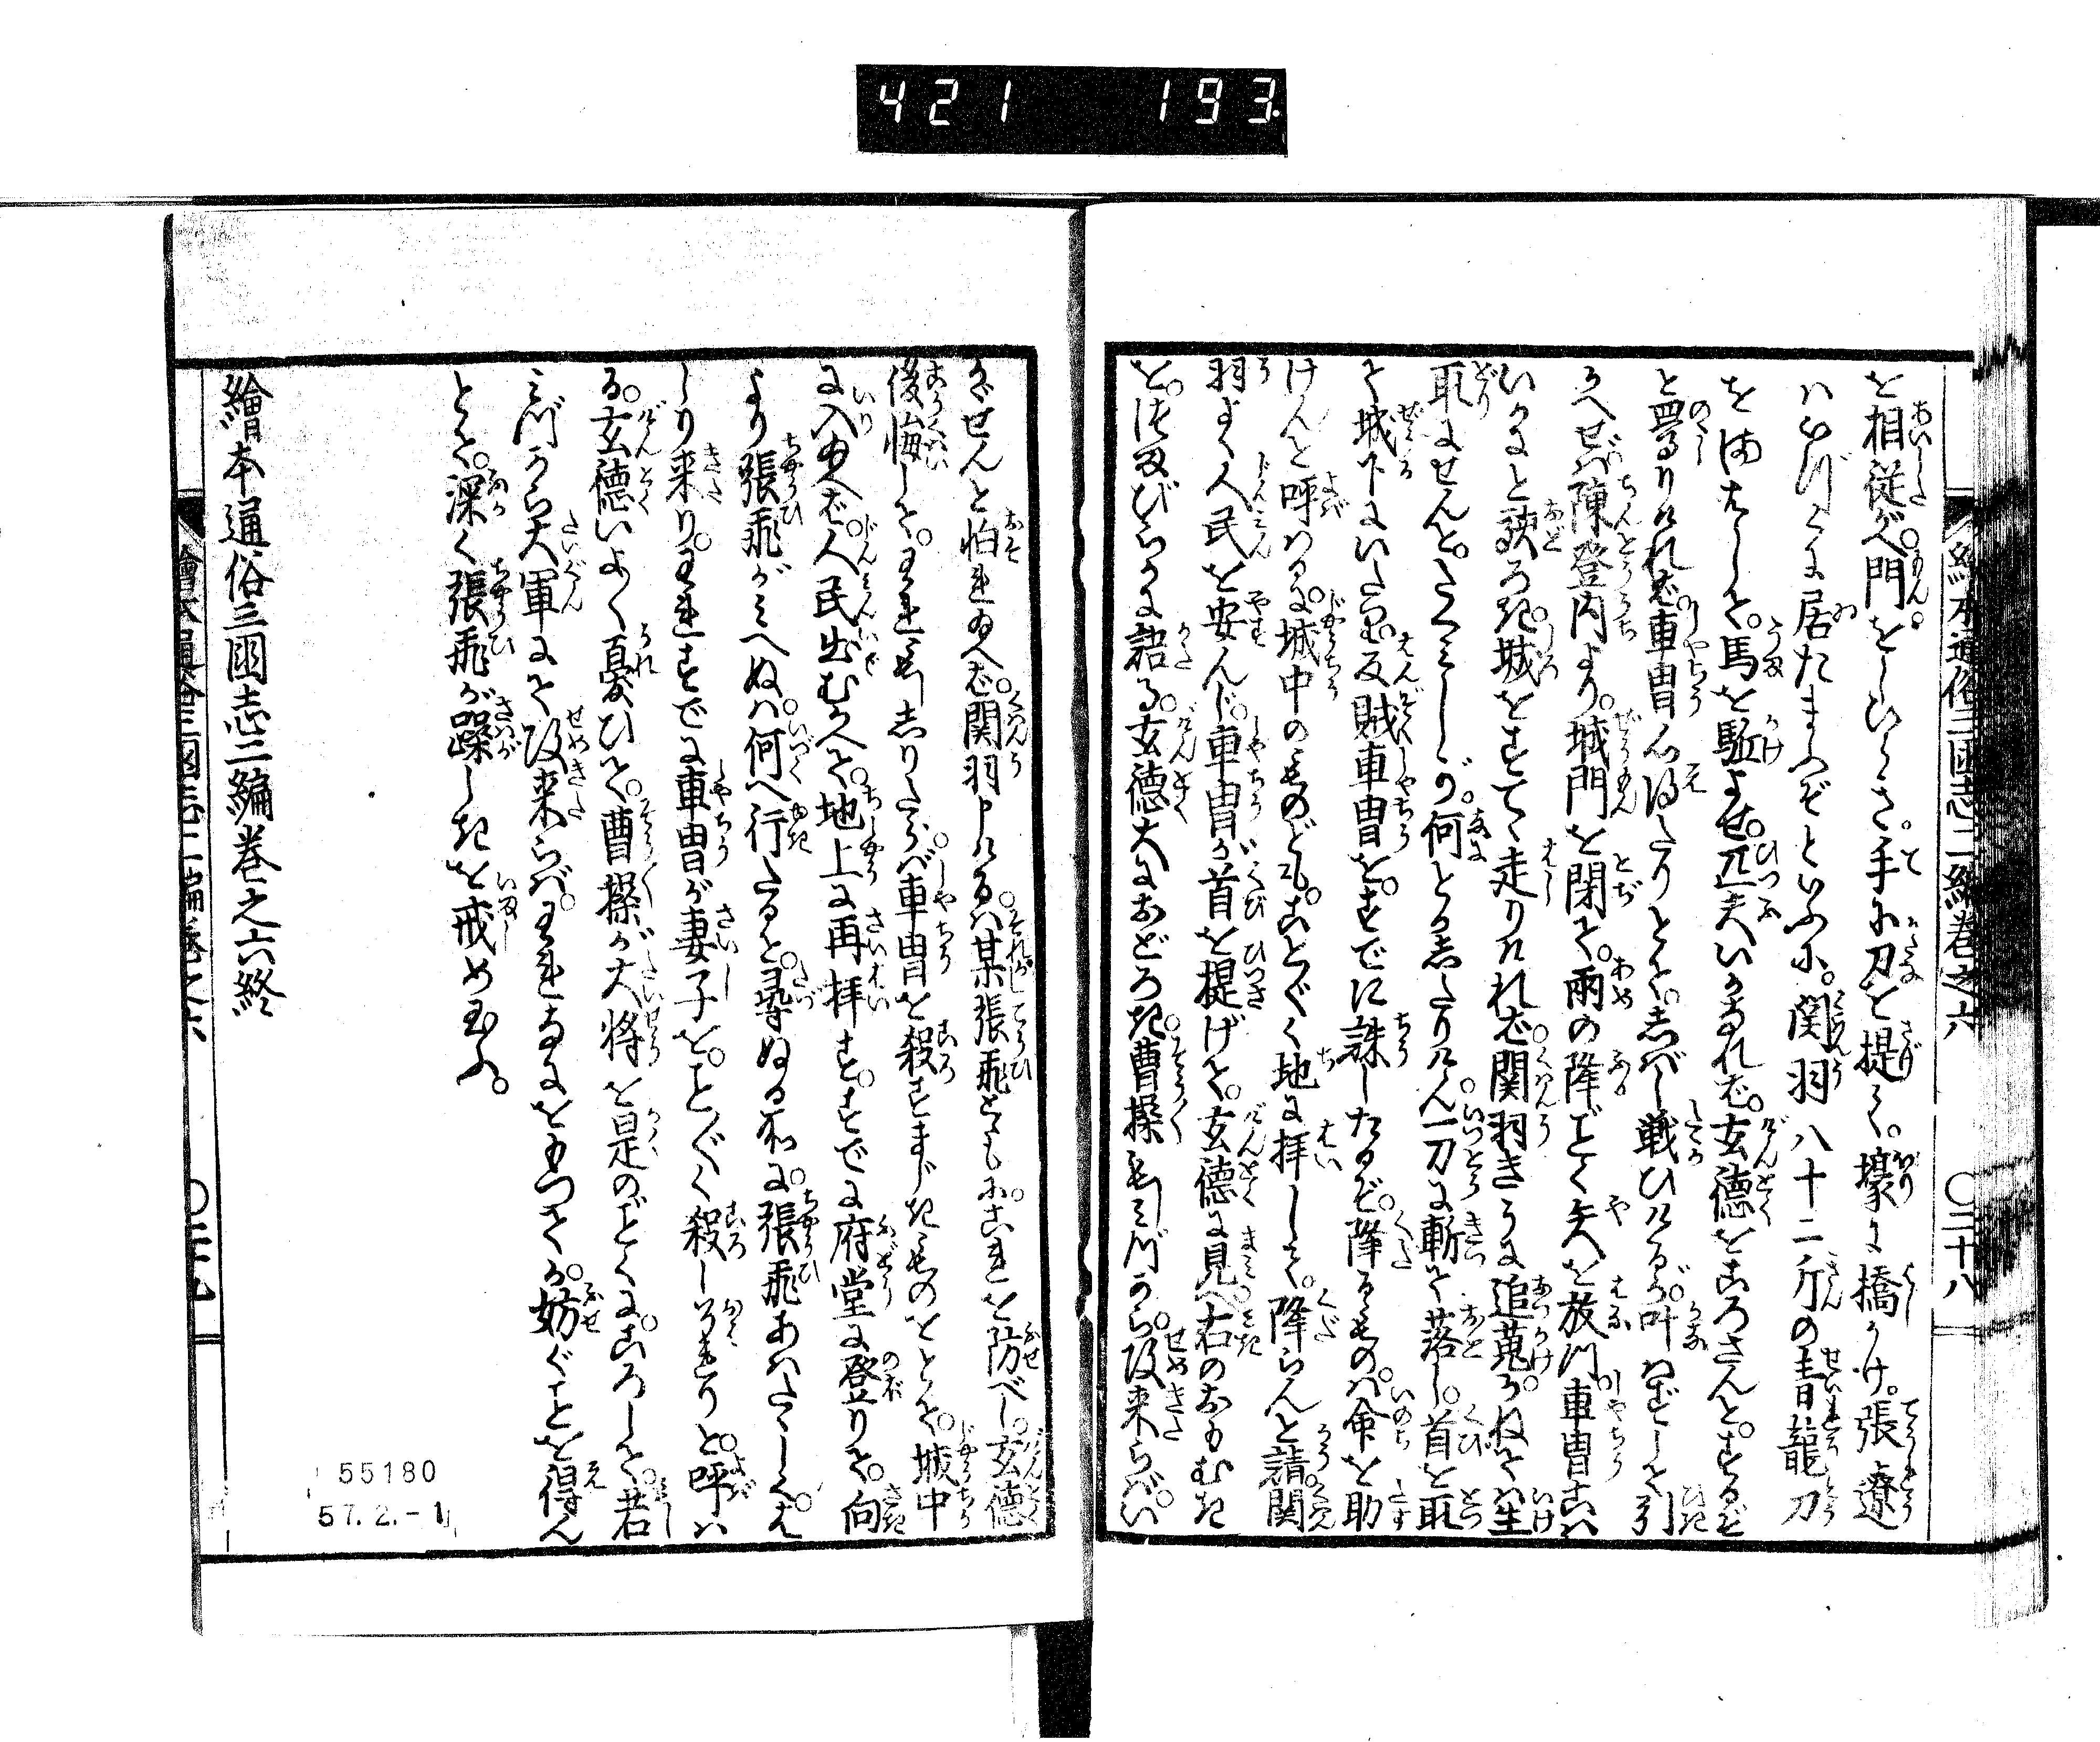 421 193.
繪本通俗三國志二編巻之六 〇二十八
を相従へ。門をしひらき。手に刀を提て。壕に橋をかけ。張遼
ハいづくに居たまふぞといふに。関羽八十二斤の青龍刀
をまはして。馬を駈よせ。匹夫いかなれば。玄徳をころさんと。するぞ
と罵りければ。車冑心得たりとて。しばし戦ひけるが。叶ねばして引
かへせバ。陳登内より。城門を閉て。雨の降ごとく矢を放つ。車冑こハ
いかにと訣ろき。城をすてて走りければ。関羽きうに追蒐。かねてハ生
取にせんと。たくみしが。何とか思たりけん。一刀に斬て落し。首を取
て城下にいたり。反賊車冑を。すでに誅したるぞ。降るものハ。命を助
けんと呼ハるに。城中のものども。ことごとく地に拝して。降らんと請。関
羽よく人民を安んじ。車冑が首を提げて。玄徳に見へ。右のおもむき
を。つまびらかに語る。玄徳大におどろき。曹操もしみづから。攻来らバ。い
かゞせんと怕れ玉へば。関羽申けるハ。某張飛とともに。これを防べし。玄徳
後悔して。われもししりたらバ。車冑を殺すまじきものをとて。城中
に入玉へば。人民出むかへて。地上に再拝す。すでに府堂に登りて。向
より張飛がミへぬハ。何へ行たると。尋ぬる所に。張飛あハたゞしく。は
しり来り。われすでに車冑が妻子を。ことごとく殺しをハれりと。呼ハ
る。玄徳いよいよ憂ひて。曹操が大将を是のごとくに。ころして。若
みづから大軍にて攻来らバ。われなにをもつてか。妨ぐことを得ん
とて。深く張飛が躁しきを戒め玉ふ。
繪本通俗三國志二編巻之六終
繪本通俗三國志二編巻之六 〇二十九
55180
57.2.-1